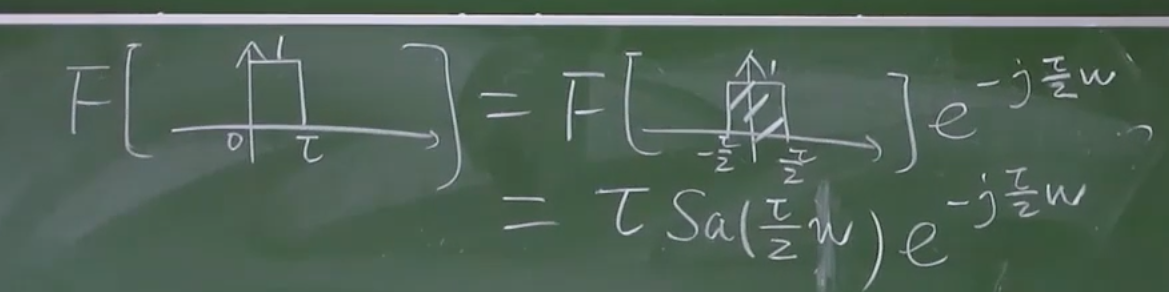 F[ 1 0 τ ] = F[ 1 -τ/2 τ/2 ] e^{-j τ/2 w}
= τ Sa(τ/2 w) e^{-j τ/2 w}